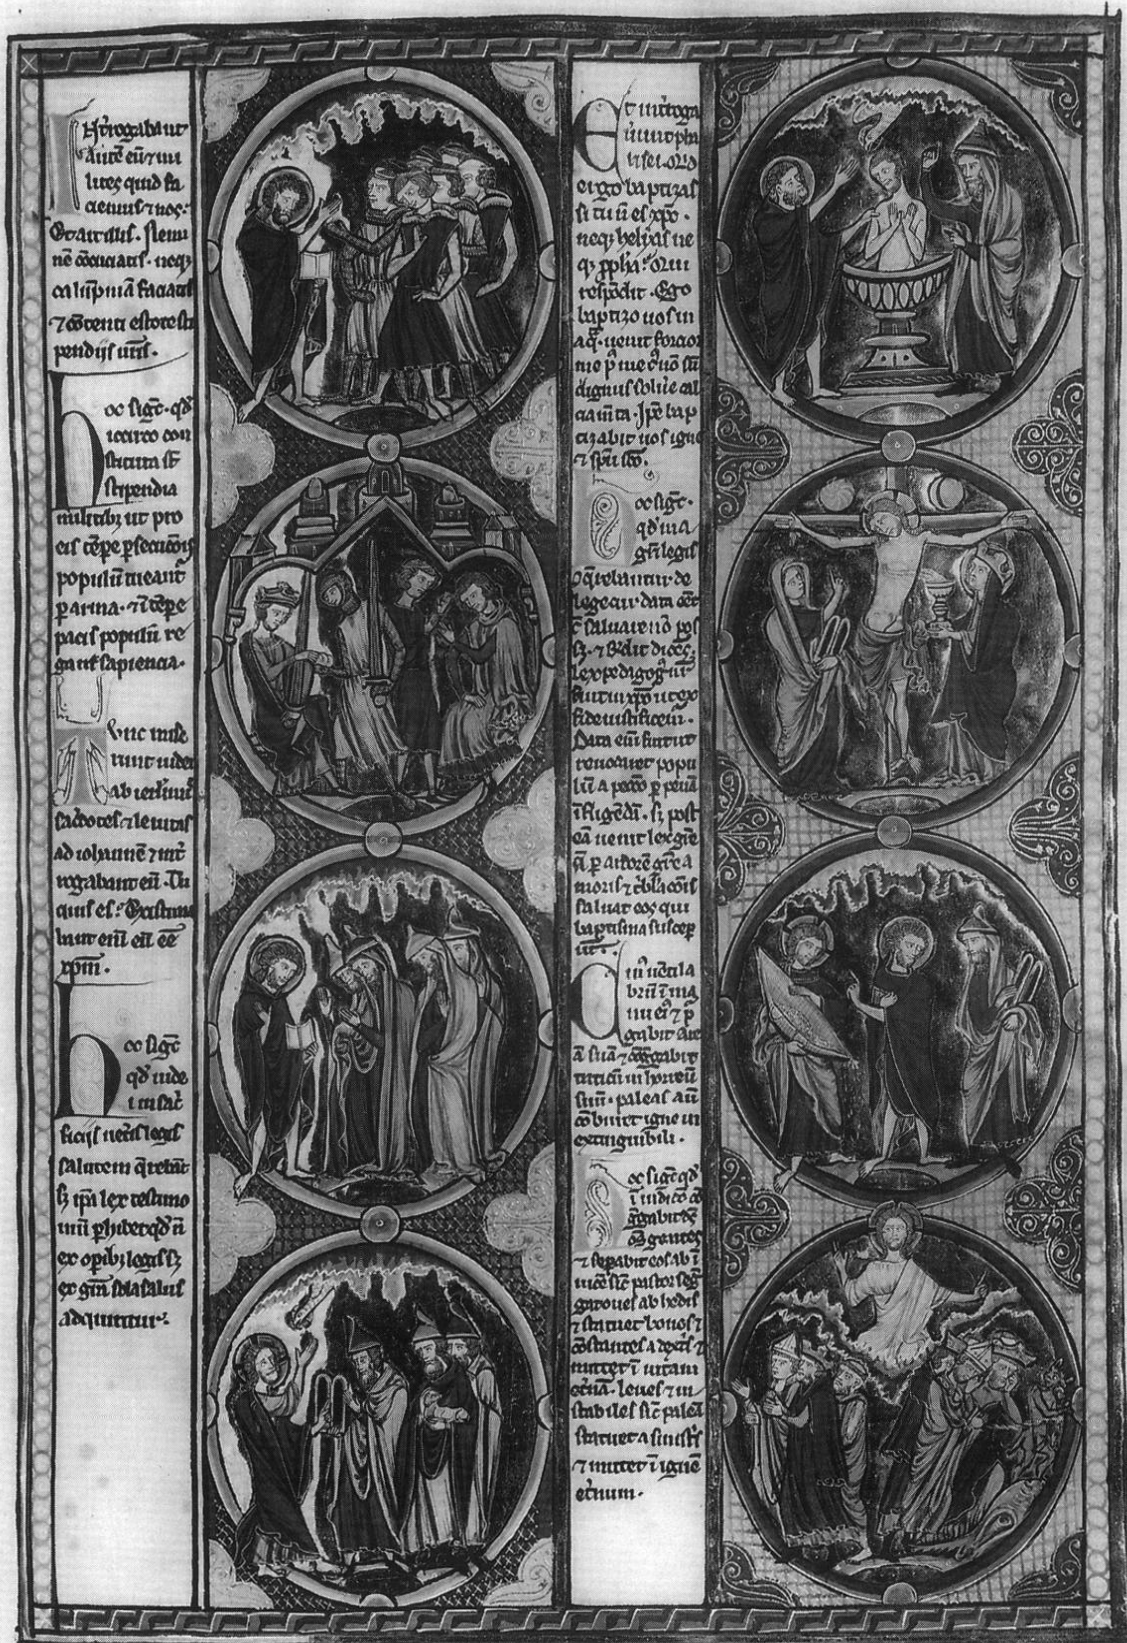 Interrogabant
autē eū & mi
lites quid fa
ciemus & nos.
Et ait illis. Nemi
nē cōcuciatis. neq;
calūpniā faciatis
& cōtenti estote sti
pendijs uris.
Hoc sigt. qd
iccirco con
stituta st
stipendia
militib; ut pro
eis tēpe psecucōis
populū tueant
p arma. & ī tēpe
pacis populū re
gant sapiencia.
Tunc mise
runt iudei
ab ierlm
sacdotes & leuitas
ad iohannē & int
rogabant eū. Tu
quis es. Existima
bant eni eū eē
xpm.
Hoc sigt
qd iude
i in sac
ficijs ueris legis
salutem qrebāt
sz ipa lex testimo
niū phibet qd ñ
ex opib; legis sz
ex grā sola salus
adquiritur.
Et introga
uerunt pha
risei. 
ergo baptizas
si tu ñ es xpc.
neq; helyas ne
q; ppha. Qui
respōdit. Ego
baptizo uos in
aq. uenit forcior
me p me cuius nō sū
dignus soluere cal
ciamta. Ipse bap
tizabit uos igne
& spū sco.
Hoc sigt.
qd ma
gri legis
qrelantur de
lege cur data eēt
saluare nō pos
sz. & 
lex pedagogus nr
fuit in xpo ut ex
fide iustificem.
Data eni fuit ut
reuocaret popu
lū a pecco p penā
īfligēdā. sz post
eā uenit lex grē
q p ardorē grē a
moris & 
saluat eos qui
baptisma suscep
int.
Cui uētila
brū ī ma
nu ei & p
gabit are
ā suā & cōggabit
triticū in horreū
suū. paleas aū
cōburet igne in
extinguibili.
Hoc sigt qd
ī iudicio cō
ggabit 
oēs gentes
& sepabit eos ab ī
uicē sic pastor seg
gat oues ab hedis
& statuet bonos &
cōstantes a dextis &
mittet ī uitam
etnā. leues & in
stabiles sic paleā
statuet a sinistis
& mittet ī ignē
etnum.